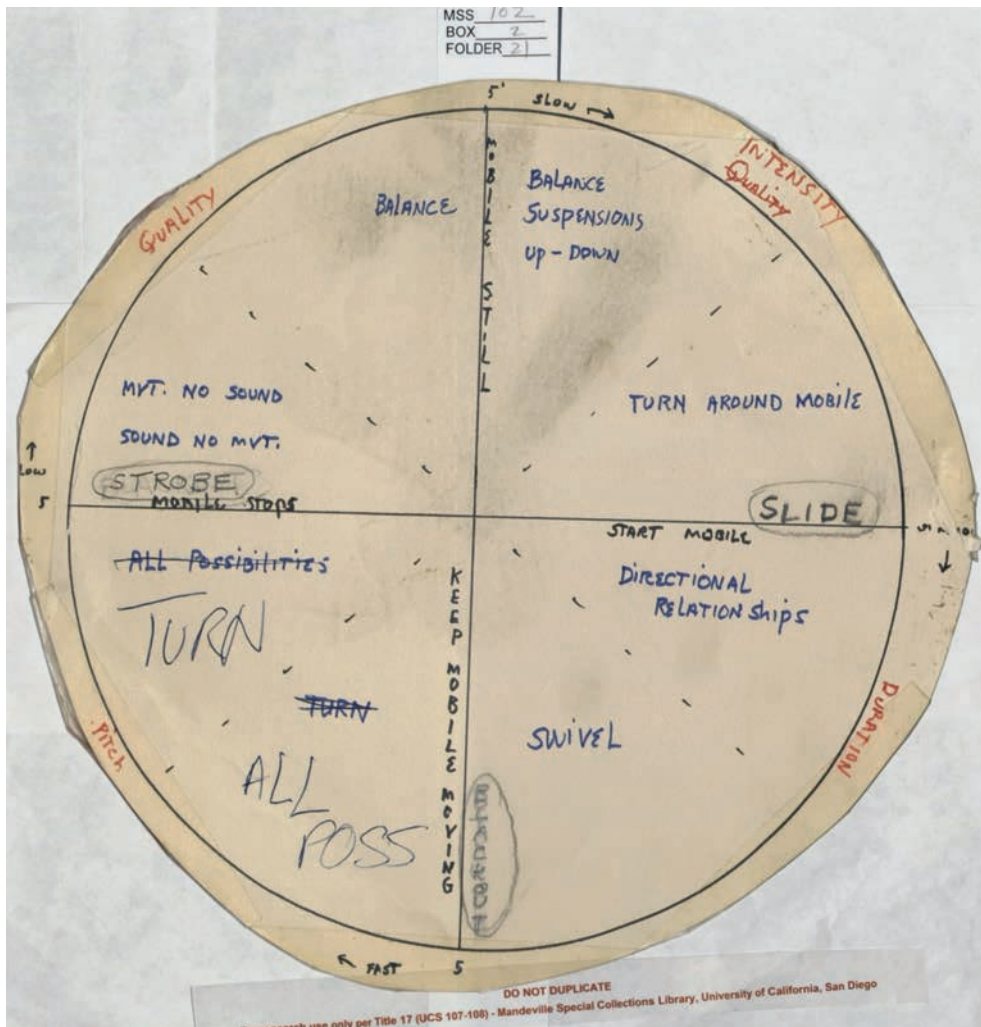 MSS 102
BOX 2
FOLDER 21
5'
SLOW →
QUALITY
INTENSITY
Quality
MOBILE STILL
BALANCE
BALANCE
SUSPENSIONS
UP-DOWN
MVT. NO SOUND
SOUND NO MVT.
TURN AROUND MOBILE
↑
LOW
5
STROBE
MOBILE STOPS
SLIDE
START MOBILE
5
↓
ALL POSSIBILITIES
TURN
TURN
ALL
POSS
DIRECTIONAL
RELATIONSHIPS
SWIVEL
KEEP MOBILE MOVING
Pitch
DURATION
← FAST
5
DO NOT DUPLICATE
use only per Title 17 (UCS 107-108) - Mandeville Special Collections Library, University of California, San Diego